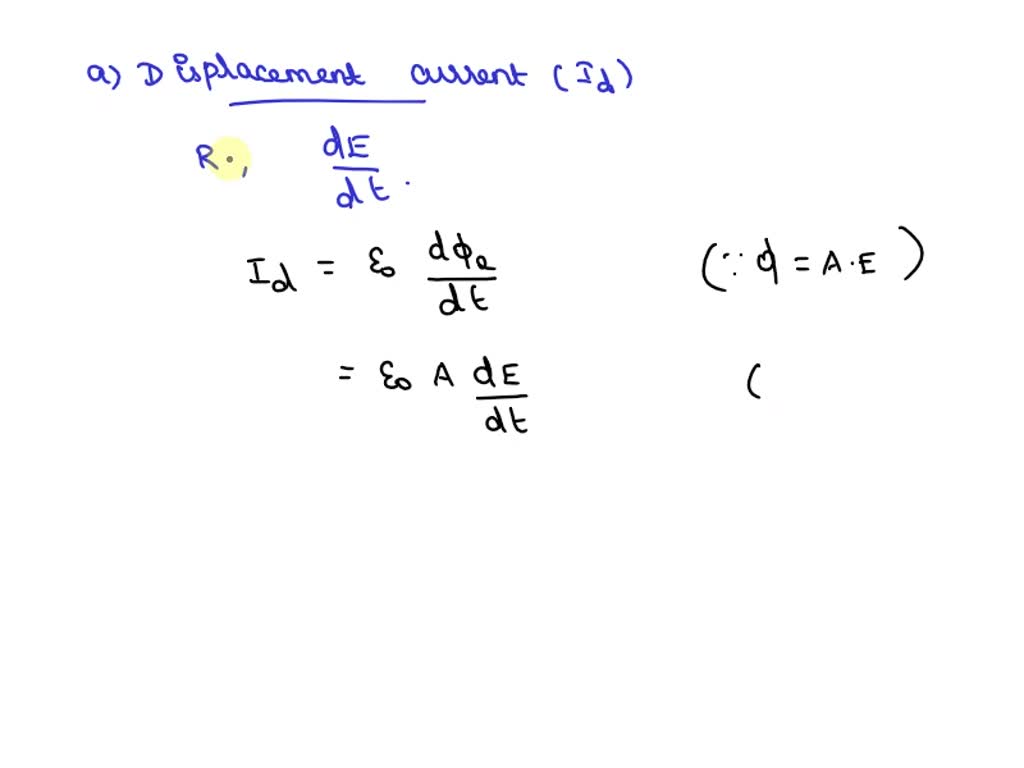 a) Displacement current (Id)
R., dE/dt.
Id = ε₀ dϕe/dt (∵ ϕ = A·E)
= ε₀ A dE/dt (